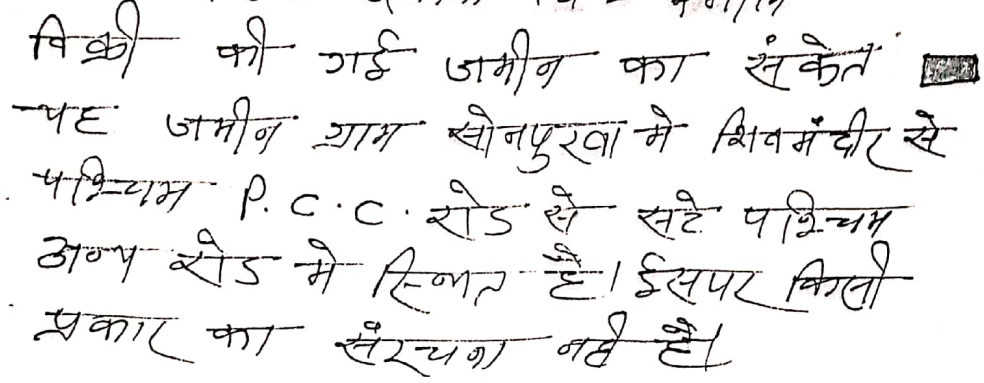 विक्री की गई जमीन का संकेत
यह जमीन ग्राम सोनपुरवा मे शिवमंदीर से
पश्चिम P.C.C. रोड से सटे पश्चिम
अन्य रोड मे स्थित है। ईसपर किसी
प्रकार का संरचना नही है।